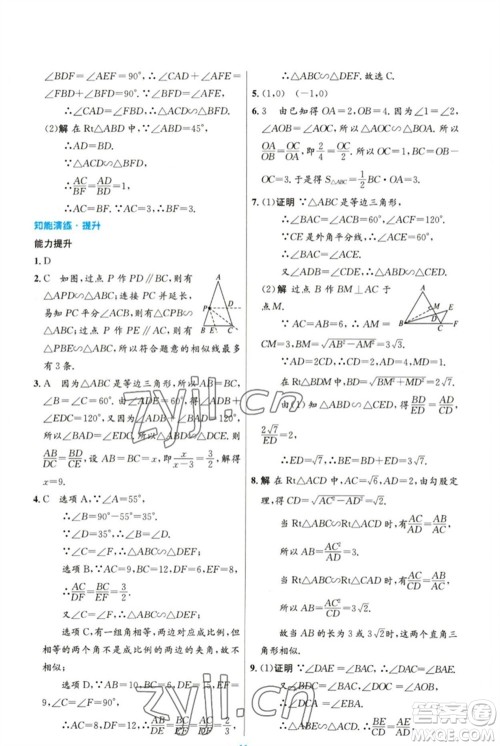 ∠BDF＝∠AEF＝90°，∴∠CAD＋∠AEF＝
∠FBD＋∠BFD＝90°，∠CAD＋∠AFE＝90°.
∴∠AFE＝∠BFD.
∴△ACD∽△BFD.
(2)解 在Rt△ABD中，∵∠ABD＝45°，
∴AD＝BD.
∵△ACD∽△BFD，
∴AC/BF＝AD/BD＝1.
∴AC＝BF.∵AC＝3，∴BF＝3.
知能演练·提升
能力提升
1. D
2. C 如图，过点P作PD∥BC，则有
△APD∽△ABC；连接PC并延长，
易知当点F在PC的延长线上时，
△PBE∽△ABC，
3条.
3. A 因为△ABC是等边三角形，所以
∠B＝∠C＝60°，所以∠BAD＋∠ADB＝
120°，∠ADB＋∠EDC＝120°，又∠ADE＝60°，
所以∠BAD＝∠CDE，所以△ABD∽△DCE.
所以AB/DC＝BD/CE，即x/(x－3)＝3/2，解得
x＝9.
4. C 选项A，∵∠A＝55°，
∴∠B＝90°－55°＝35°.
∵∠D＝35°，∴∠B＝∠D.
又∠C＝∠F，
∴△ABC∽△DEF；
选项B，∵AC＝9，BC＝12，DF＝6，EF＝8，
∴AC/DF＝BC/EF＝3/2.
又∠C＝∠F，∴△ABC∽△DEF；
选项C，有一组角相等、两边对应成比例，但该组角不是成比例的两边的夹角，故不
相似；
选项D，∵AB＝10，BC＝6，DE＝15，EF＝9，
∴AC＝8，DF＝12，∴AC/DF＝BC/EF＝
∴△ABC∽△DEF.故选C.
5. (1,0) (－1,0)
6. 3 由已知得OA＝2，OB＝4.因为∠1＝∠2，
∠AOB＝∠AOC，所以△AOB∽△COA，所以
OA/OB＝OC/OA，即2/4＝OC/2，所以OC＝1，
7. (1)证明 ∵△ABC是等边三角形，
∴∠BAC＝∠ACB＝60°，∠ACF＝120°.
∵CE是外角平分线，
∴∠ACE＝60°.∴∠BAC＝∠ACE.
又∠ADB＝∠CDE，
∴△ABD∽△CED.
(2)解 过点B作BM⊥AC于
点M.
∵AC＝AB＝6，∴AM＝
CM＝3，BM＝√(AB²－AM²)＝3√3.
∵AD＝2CD，∴CD＝2，AD＝4，MD＝1.
在Rt△BDM中，BD＝√(BM²＋MD²)＝2√7.
由(1)△ABD∽△CED得，BD/ED＝AD/CD，2√7/ED＝2，
∴ED＝√7.∴BE＝BD＋ED＝3√7.
8. 解 ∵∠ADC＝90°，AC＝√6，AD＝2，由勾股定
理，得CD＝√(AC²－AD²)＝√2.
当Rt△ABC∽Rt△ACD时，有AC/AD＝AB/AC，
所以AB＝AC²/AD＝3.
当Rt△ABC∽Rt△CAD时，有AC/CD＝AB/AC，
所以AB＝AC²/CD＝3√2.
故当AB的长为3或3√2时，这两个直角三角
形相似.
9. (1)证明 ∵∠DAE＝∠BAC，∴∠DAE＋
zyjl.cn
zyjl.cn
答案圈
MXQE.COM